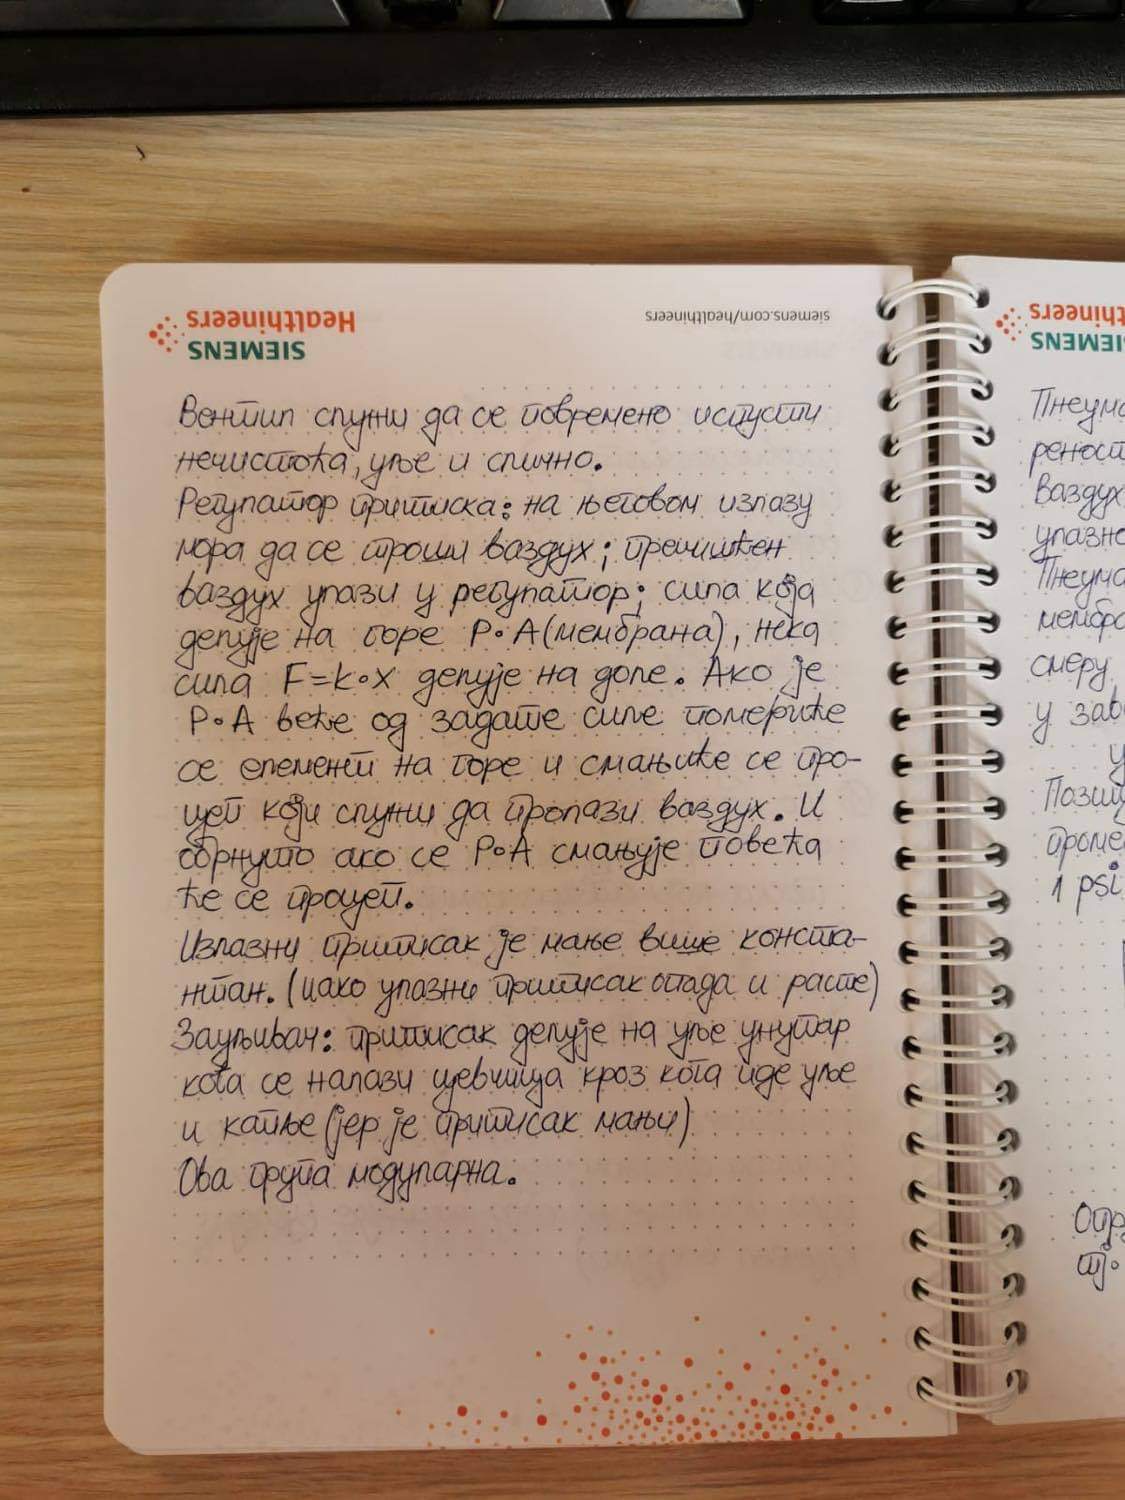 siemens.com/healthineers
SIEMENS
Healthineers
Вентил служи да се повремено испусти
нечистоћа, уље и слично.
Регулатор притиска: на његовом излазу
мора да се троши ваздух; пречишћен
ваздух улази у регулатор; сила која
делује на горе P·A (мембрана), нека
сила F=k·x делује на доле. Ако је
P·A веће од задате силе помериће
се елемент на горе и смањиће се про-
цеп који служи да пролази ваздух. И
обрнуто ако се P·A смањује повећа
ће се процеп.
Излазни притисак је мање више конста-
нтан. (иако улазни притисак опада и расте)
Зауљивач: притисак делује на уље унутар
кога се налази цевчица кроз кога иде уље
и капље (јер је притисак мањи)
Ова група модуларна.
SIEMEN
thineers
Пнеума
реност
Ваздух
улазно
Пнеума
мембра
смеру
у зав
у
Позиц
проме
1 psi
Опр
тј.